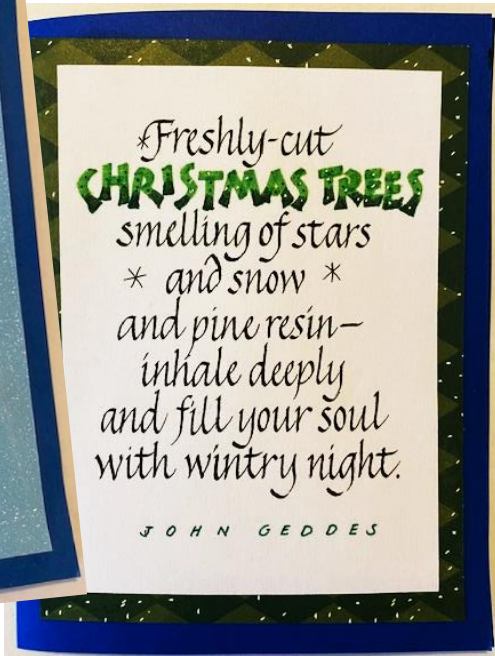 *Freshly-cut
CHRISTMAS TREES
smelling of stars
* and snow *
and pine resin—
inhale deeply
and fill your soul
with wintry night.
JOHN GEDDES